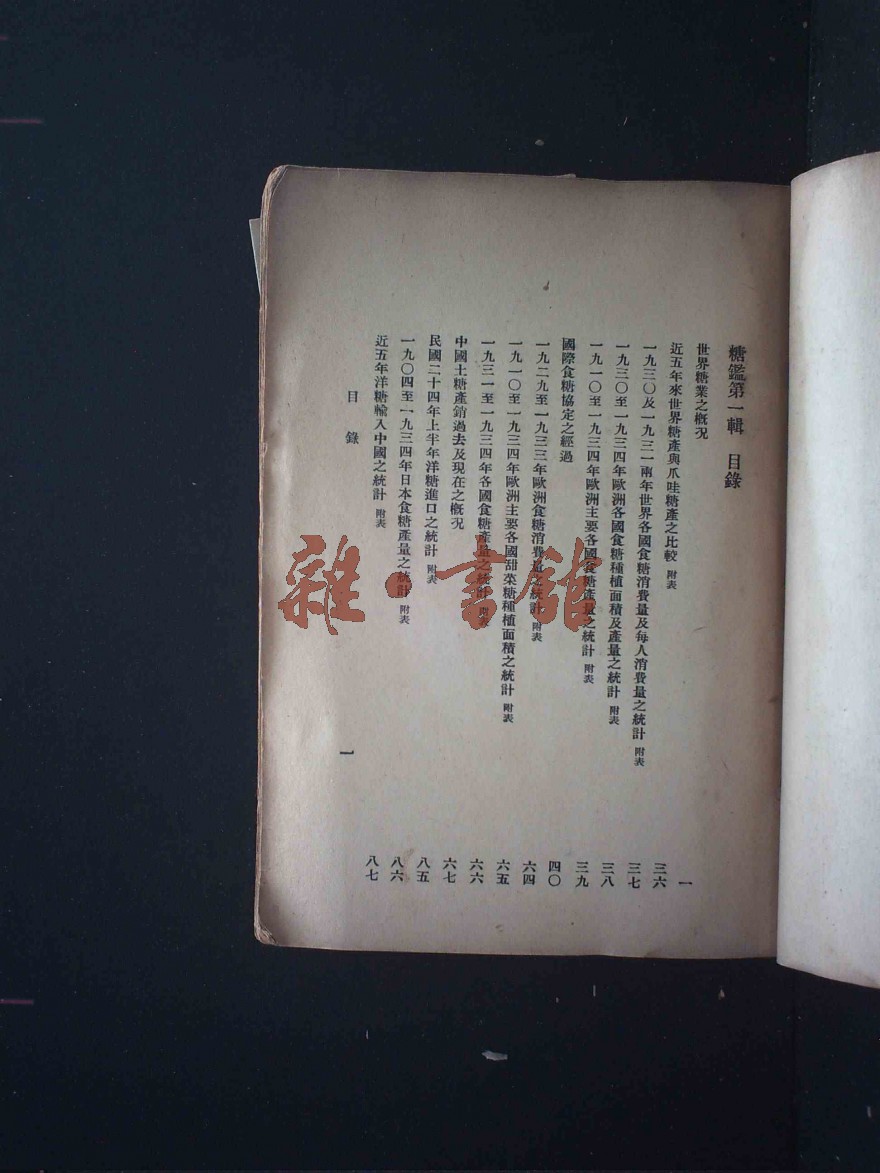 糖鑑第一輯 目錄
世界糖業之概況 一
近五年來世界糖產與爪哇糖產之比較 附表 三六
一九三〇及一九三一兩年世界各國食糖消費量及每人消費量之統計 附表 三七
一九三〇至一九三四年歐洲各國食糖種植面積及產量之統計 附表 三八
一九一〇至一九三四年歐洲主要各國食糖產量之統計 附表 三九
國際食糖協定之經過 四〇
一九二九至一九三三年歐洲食糖消費量之統計 附表 六四
一九一〇至一九三四年歐洲主要各國甜菜糖種植面積之統計 附表 六五
一九三一至一九三四年各國食糖產量之統計 附表 六六
中國土糖產銷過去及現在之概況 六七
民國二十四年上半年洋糖進口之統計 附表 八五
一九〇四至一九三四年日本食糖產量之統計 附表 八六
近五年洋糖輸入中國之統計 附表 八七
目錄 一
雜·書館